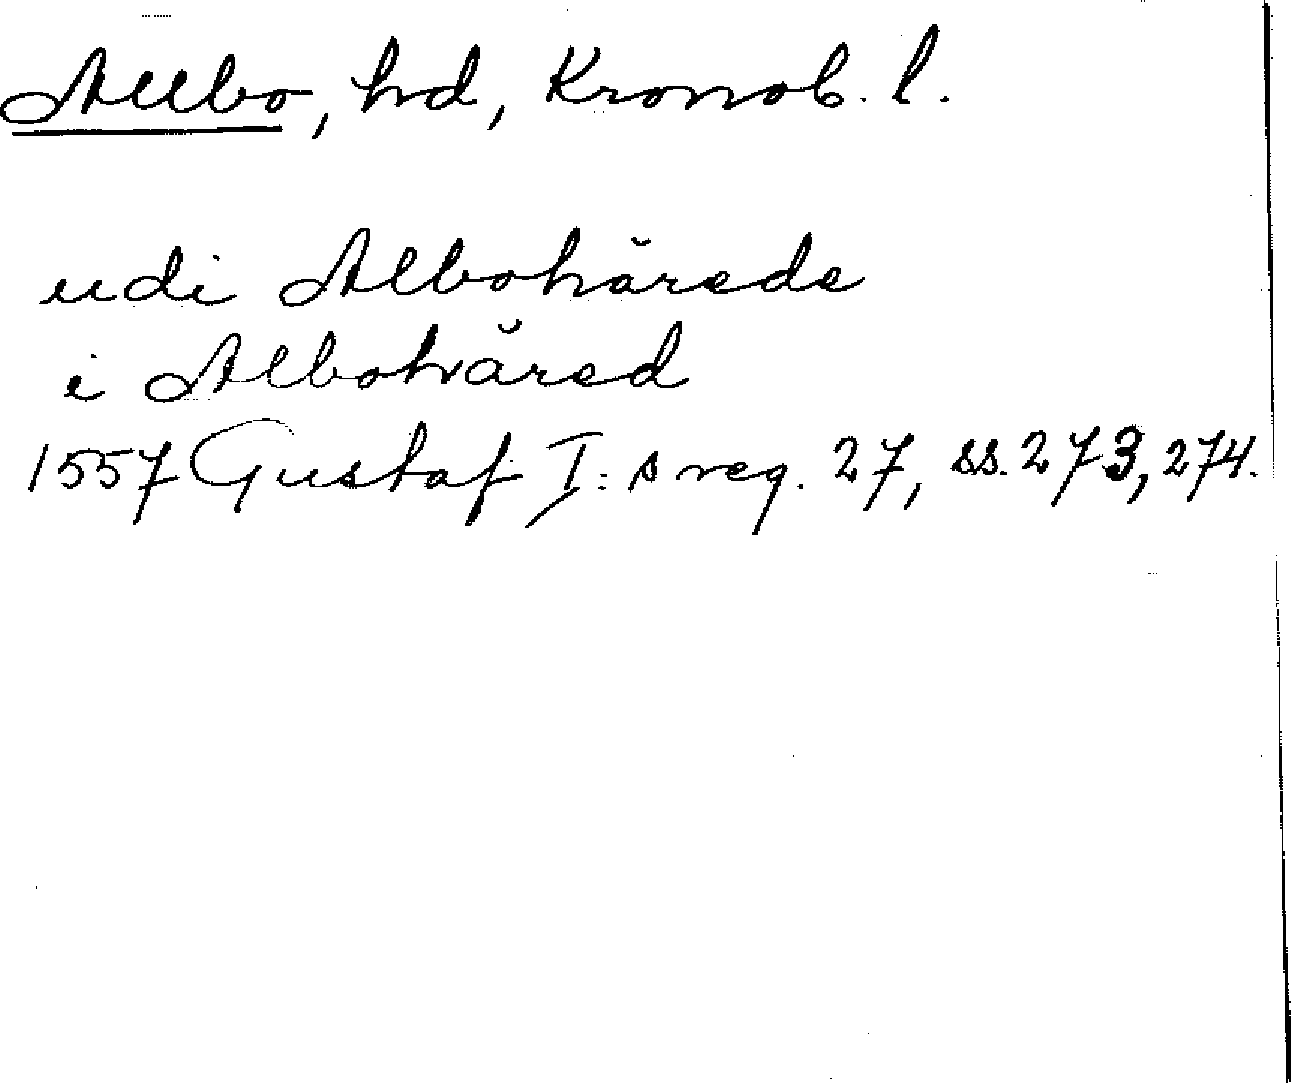 Allbo, hd, Kronob. l.
udi Albohärede
i Albohäred
1557 Gustaf I:s reg. 27, ss. 273, 274.